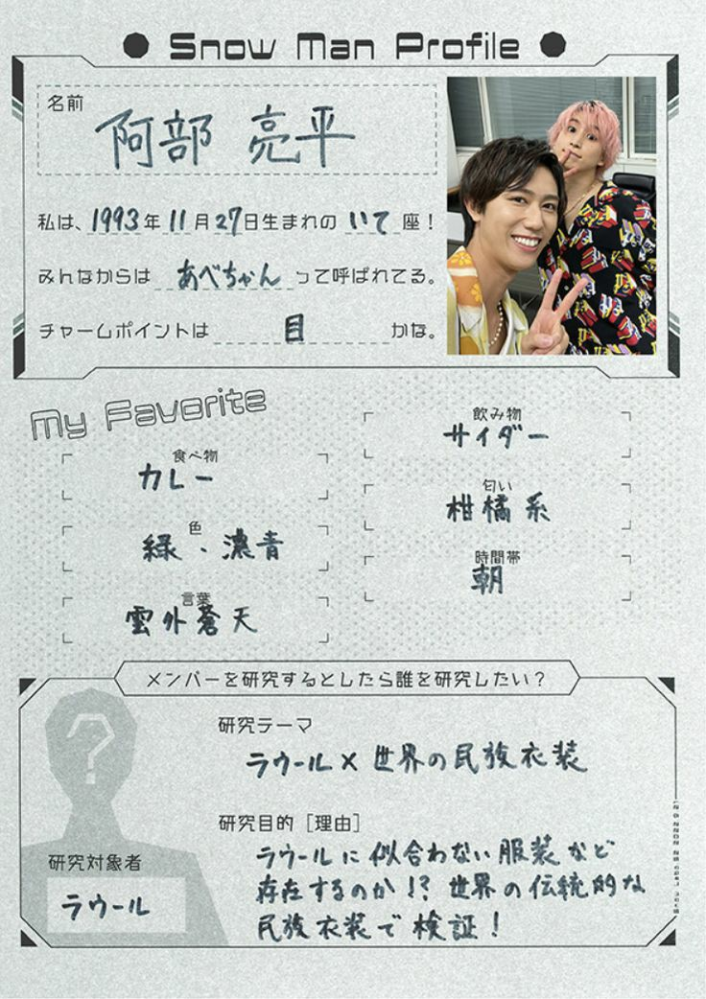 Snow Man Profile
名前
阿部 亮平
私は、1993年11月27日生まれのいて座！
みんなからはあべちゃんって呼ばれてる。
チャームポイントは目かな。
My Favorite
食べ物
カレー
色
緑・濃青
言葉
雲外蒼天
飲み物
サイダー
匂い
柑橘系
時間帯
朝
メンバーを研究するとしたら誰を研究したい？
?
研究対象者
ラウール
研究テーマ
ラウール×世界の民族衣装
研究目的［理由］
ラウールに似合わない服装など
存在するのか!? 世界の伝統的な
民族衣装で検証！